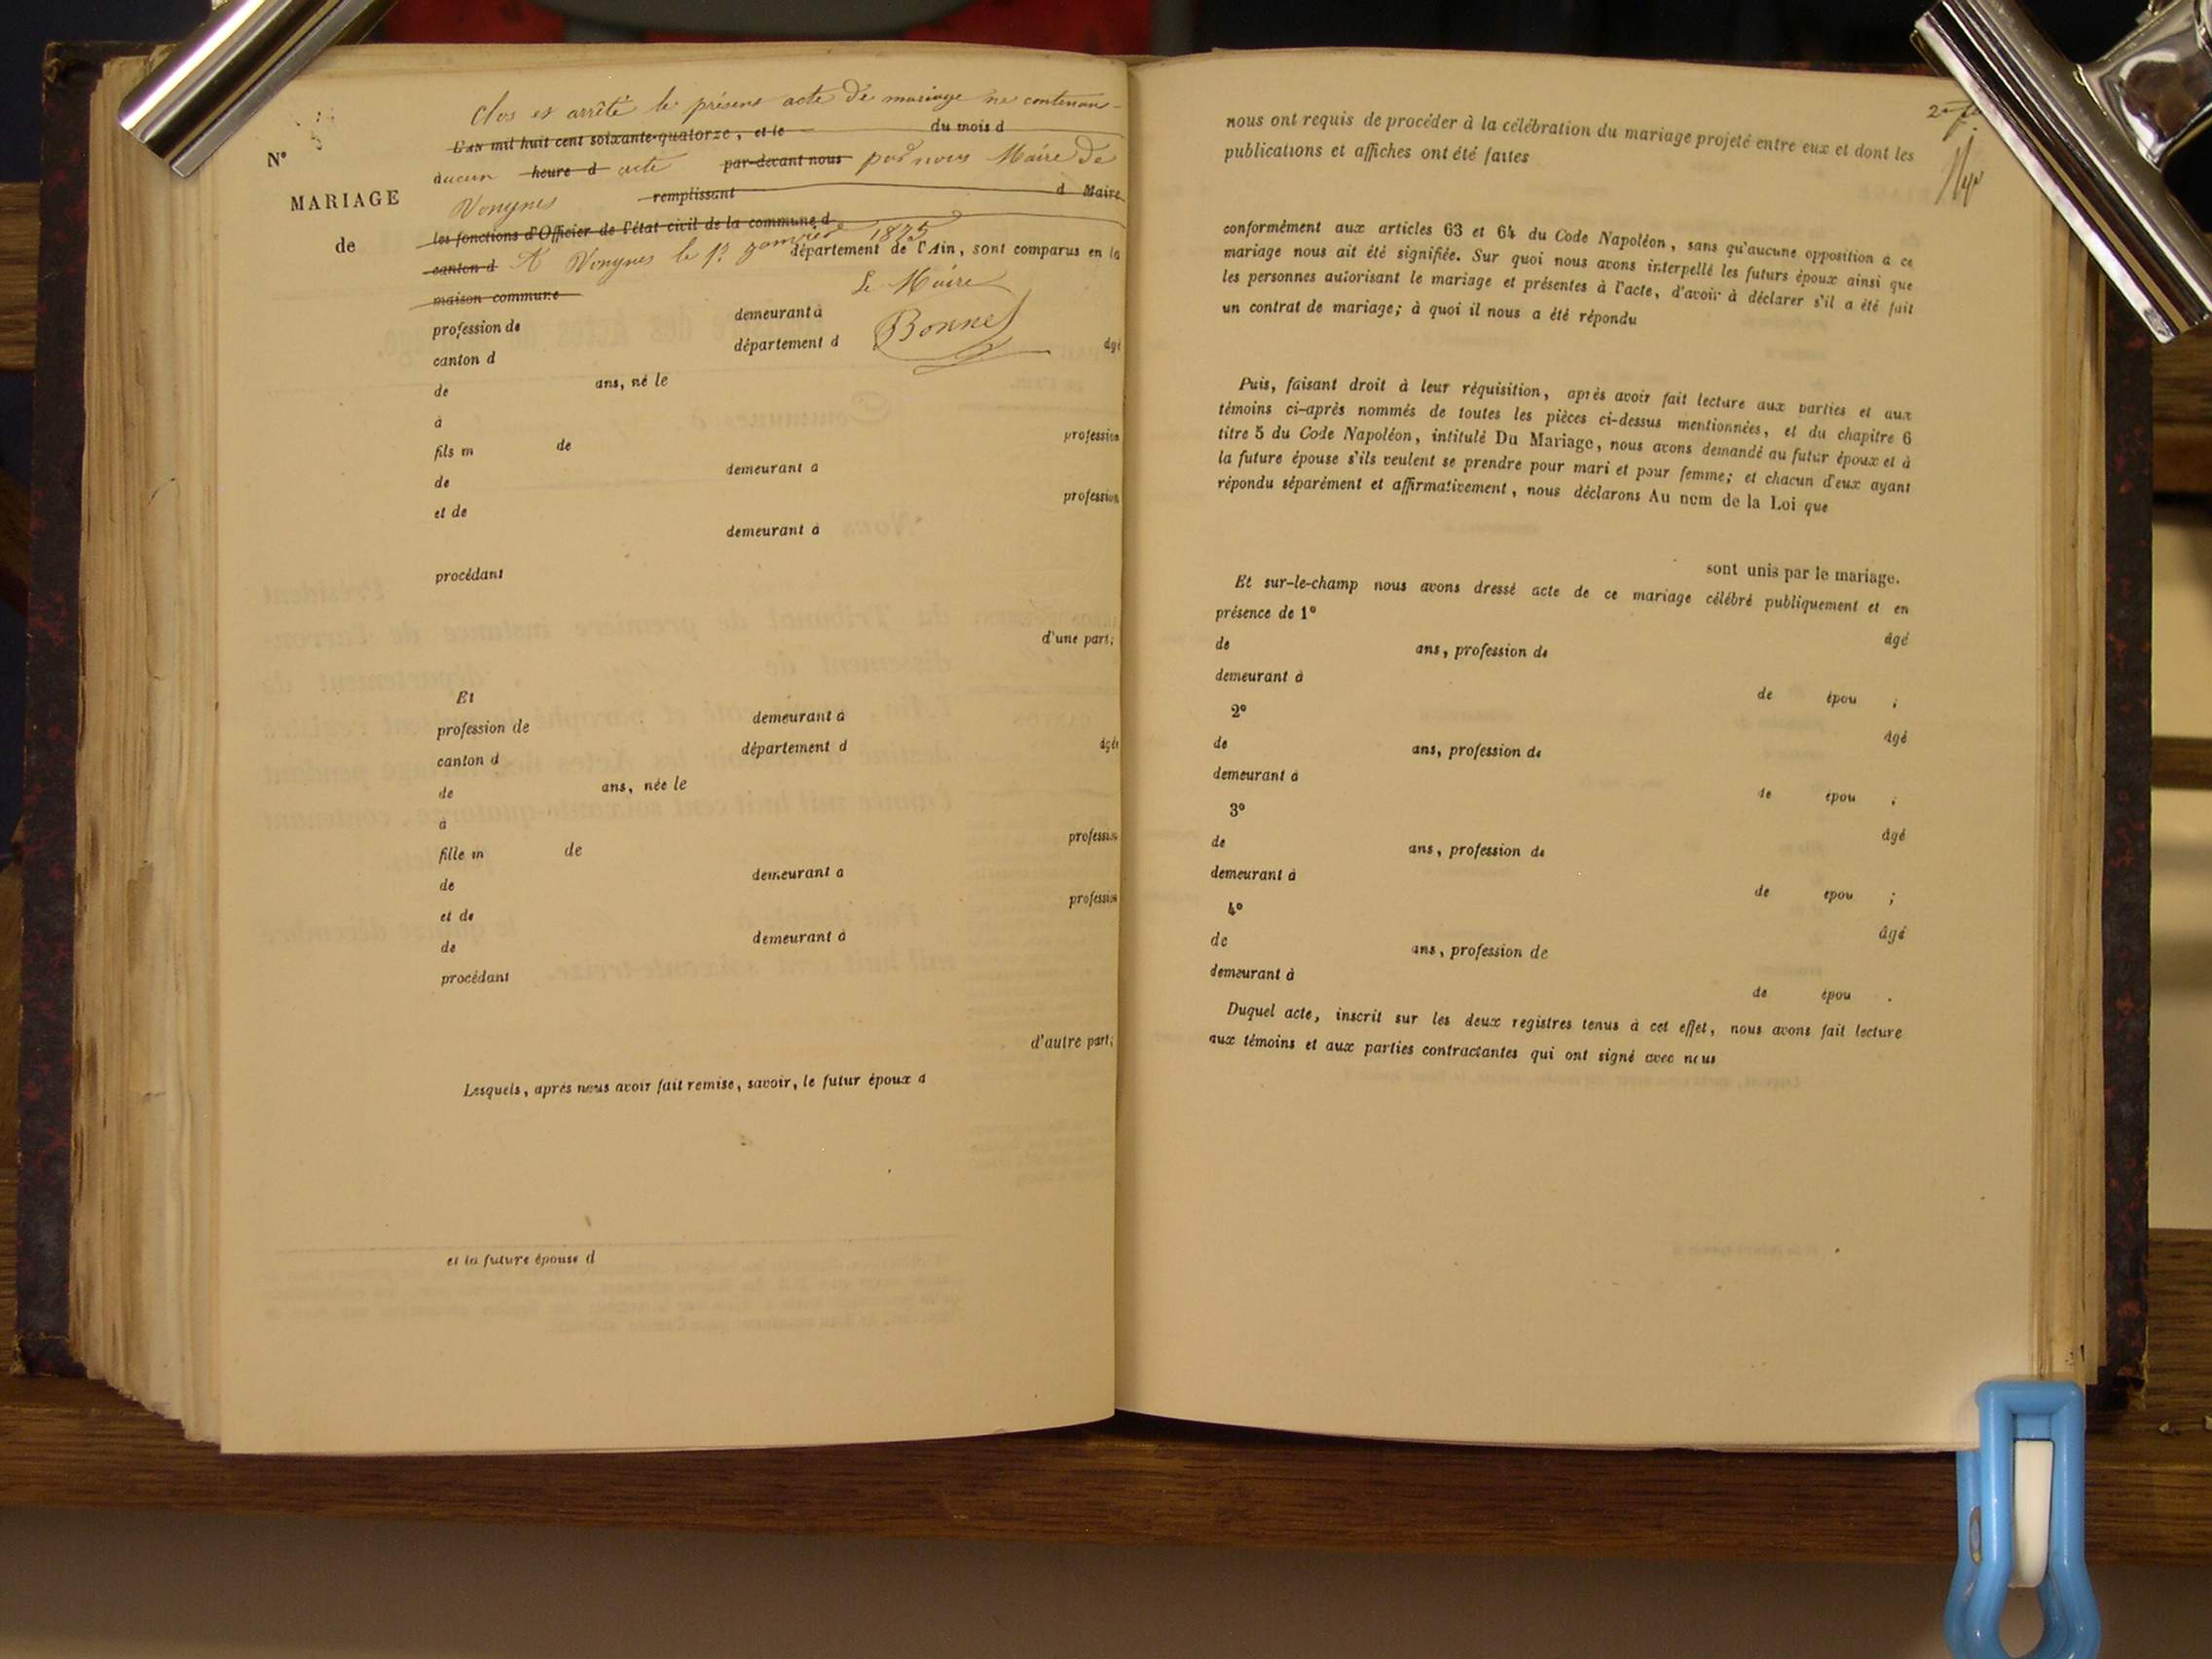 Clos et arrêté le présent acte de mariage ne contenan-
L'AN mil huit cent soixante-quatorze, et le du mois d
aucun heure d acte par-devant nous par nous Maire de
Vongnes remplissant d Maire
les fonctions d'Officier de l'état civil de la commune d
canton d A Vongnes le 1er janvier 1875 département de l'Ain, sont comparus en la
maison commune Le Maire
N°
MARIAGE
de
profession de demeurant à Bonnet
canton d département d âgé
de ans, né le
à
fils m de profession
de demeurant a
et de profession
demeurant à
procédant
d'une part;
Et
profession de demeurant à
canton d département d âgée
de ans, née le
à
fille m de profession
de demeurant a
et de profession
de demeurant à
procédant
d'autre part;
Lesquels, après nous avoir fait remise, savoir, le futur époux d
et la future épouse d
nous ont requis de procéder à la célébration du mariage projeté entre eux et dont les
publications et affiches ont été faites
conformément aux articles 63 et 64 du Code Napoléon, sans qu'aucune opposition à ce
mariage nous ait été signifiée. Sur quoi nous avons interpellé les futurs époux ainsi que
les personnes autorisant le mariage et présentes à l'acte, d'avoir à déclarer s'il a été fait
un contrat de mariage; à quoi il nous a été répondu
Puis, faisant droit à leur réquisition, après avoir fait lecture aux parties et aux
témoins ci-après nommés de toutes les pièces ci-dessus mentionnées, et du chapitre 6
titre 5 du Code Napoléon, intitulé Du Mariage, nous avons demandé au futur époux et à
la future épouse s'ils veulent se prendre pour mari et pour femme; et chacun d'eux ayant
répondu séparément et affirmativement, nous déclarons Au nom de la Loi que
sont unis par le mariage.
Et sur-le-champ nous avons dressé acte de ce mariage célébré publiquement et en
présence de 1°
âgé
de ans, profession de
demeurant à
de épou ;
2°
âgé
de ans, profession de
demeurant à
de épou ;
3°
âgé
de ans, profession de
demeurant à
de épou ;
4°
âgé
de ans, profession de
demeurant à
de épou .
Duquel acte, inscrit sur les deux registres tenus à cet effet, nous avons fait lecture
aux témoins et aux parties contractantes qui ont signé avec nous